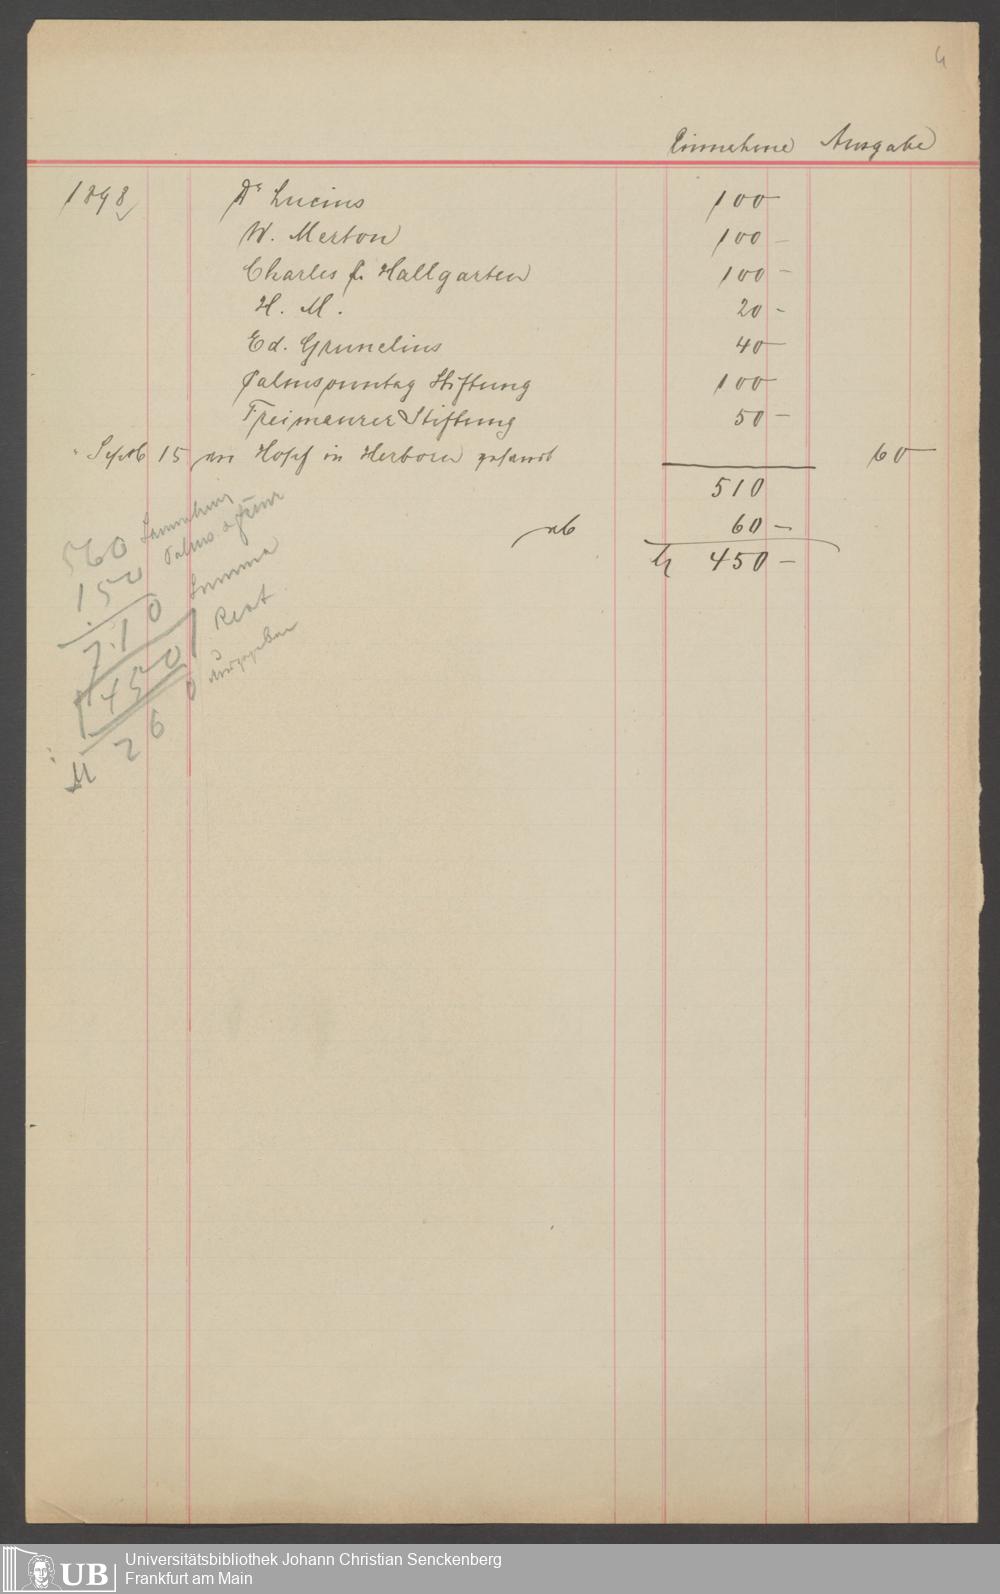 4
Einnahme Ausgabe
1898 Dr Lucius 100 —
W. Merton 100 —
Charles L. Hallgarten 100 —
H. M. 20 —
Ed. Grunelius 40 —
Palmsonntag Stiftung 100 —
Freimaurer Stiftung 50 —
" Septb 15 an Hopf in Herborn gesandt 60 —
510
ab 60 —
M 450 —
560 Sammlung
150 Palms. & Freim
710 Summa
450 Rest
M 260 Ausgegeben
UB Universitätsbibliothek Johann Christian Senckenberg
Frankfurt am Main